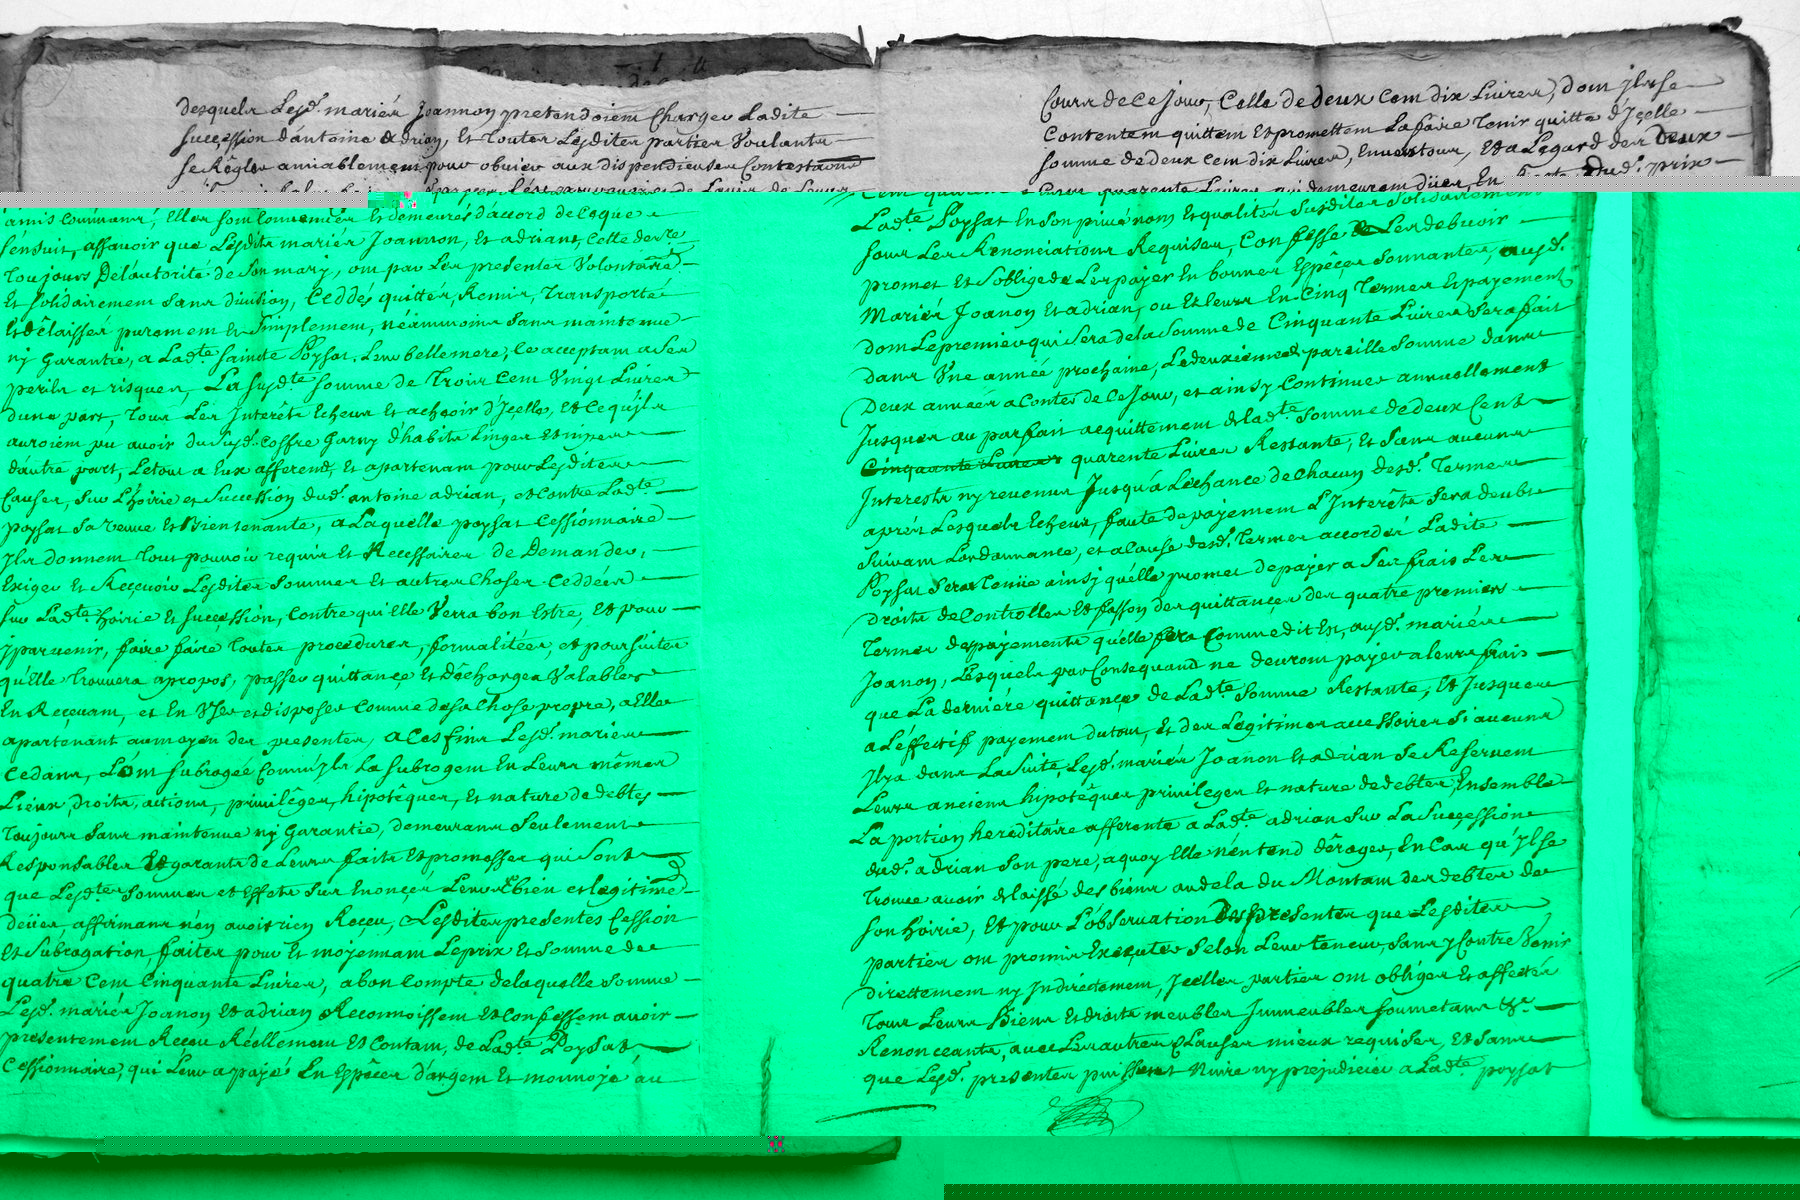 desquels Lesd. mariés Joannon pretendoient Charger Ladite
succession d'antoine adrian, Et toutes Lesdites parties Voulants
se Régler amiablement pour obvier aux dispendieuses Contestaons
amis communs, Elles sont convenues Et demeurés d'accord de ce que
s'ensuit, assavoir que Lesdits mariés Joannon, Et adriane, Cette derre
Toujours De l'autorité de son mary, ont par Les presentes Volontaire
Et solidairement sans division, Ceddés quittés, Remis, Transporté
Et délaissés purement Et Simplement, néanmoins sans maintenue
ny Garantie, a Ladte Poysat Leur bellemere, Ce acceptant a Ses
perils et risques, La susdte somme de Trois Cent Vingt Livres
d'une part, Tous Les Interêts Echeus Et a echoir d'Icelle, Et Ce qu'jls
auroient pu avoir du susd. coffre Garny d'habits Linges Et nipes
d'autre part, Le tout a Eux afferend, Et apartenant pour Lesdites
Causes, Sur L'hoirie et Succession dud. antoine adrian, et contre Ladte
poysat Sa veuve Et Bientenante, a Laquelle poysat Cessionnaire
Jls donnent tout pouvoir requis Et Necessaires de Demander,
Exiger Et Recevoir Lesdites Sommes Et autres Choses Ceddées
Sur Ladte hoirie Et succession, Contre qui Elle Verra bon Estre, Et pour
y parvenir, faire faire toutes procedures, formalitées, et poursuites
qu'Elle Trouvera apropos, passer quittance Et Décharges Valables
En Recevant, et En User et disposer Comme de Sa Chose propre, a Elle
apartenant au moyen des presentes, a Ces fins Lesd. mariés
Cedans, L'ont subrogée Comm'jls La subrogent En Leurs mêmes
Lieux, droits, actions, privilêges, hipotêques, Et nature de debtes
Toujours Sans maintenue ny Garantie, demeurans Seulement
Responsables Et garants de Leurs faits Et promesses qui Sont
que Lesdtes Sommes et Effets Sus Enoncés Leur Et bien et legitime
deües, affirmans n'en avoir rien Receu, Lesdites presentes Cession
Et Subrogation, faites pour Et moyennant Le prix Et Somme de
quatre Cent Cinquante Livres, a bon Compte de laquelle Somme
Lesd. mariés Joanon Et adrian Reconnoissent Et Confessent avoir
presentement Receu Réellement Et Contant, de Ladte Poysat,
Cessionnaire, qui Leur a payé En Espêces d'argent Et monnoye au
Cours de Ce Jour, Celle de Deux Cent dix Livres, dont Jls se
Contentent quittent Et promettent La faire Tenir quitte d'Jcelle
somme de deux Cent dix Livres, Envers tous, Et a L'egard des Deux
Ladte Poysat En Son privé nom Et qualités Susdites Solidairement
Sous Les Renonciations Requises, Confesse Les debvoir
promet Et S'oblige de Les payer En bonnes Espêces Sonnantes, ausd.
Mariés Joanon Et adrian, ou Et Leurs En Cinq Termes Et payements
dont Le premier qui Sera de la Somme de Cinquante Livres Sera fait
dans Une année prochaine, Le deuxième de pareille Somme dans
Deux années a Conter de Ce Jour, et ainsy Continuer annuellement
Jusques au parfait acquittement de Ladte Somme de deux Cent
quarente Livres Restante, Et Sans aucuns
Interests ny revenus Jusqu'a L'echance de Chacun desd. Termes
aprés Lesquels Echeus, faute de payement L'Interêts Sera deubt
Suivant L'ordonnance, et a Cause desd. Termes accordés Ladite
Poysat Sera Tenüe ainsy qu'élle promet de payer a Ses frais Les
droits de Controlles Et fasson des quittances des quatre premiers
Termes de payements qu'élle fera Comme dit Est, ausd. mariés
Joanon, Lesquels par Consequand ne devront payer a leurs frais
que La derniére quittance de Ladte Somme Restante, Et Jusques
a L'éffectif payement du tout, Et des Legitimes accessoires Si aucuns
Jl y a dans La Suite, Lesd. mariés Joanon Et adrian Se Reservent
Leurs anciens hipotêques privileges Et nature de debtes, Ensemble
La portion hereditaire afferente a Ladte adrian Sur La Succession
dud. adrian Son pere, a quoy Elle n'entend déroger, En Cas qu'Jl se
Trouve avoir delaissé des biens audela du Montant des debtes de
Son hoirie, Et pour L'observation Des presentes que Lesdites
parties ont promis Executer Selon Leur teneur, Sans y Contre Venir
directement ny Jndirectement, Jcelles parties ont obliges Et affectés
Tous Leurs Biens Et droits meubles Jmmeubles soumetans &c.
Renonceants, avec Les autres Clauses mieux requises, Et Sans
que Lesd. presentes puissent Nuire ny prejudicier a Ladte poysat